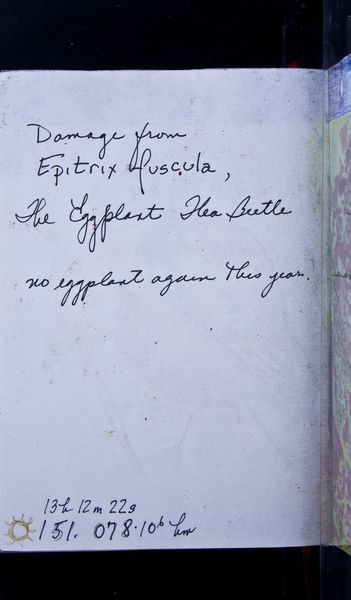 Damage from
Epitrix fuscula,
The Eggplant Flea Beetle
no eggplant again this year.
13h 12m 22s
151.078·10⁶ km